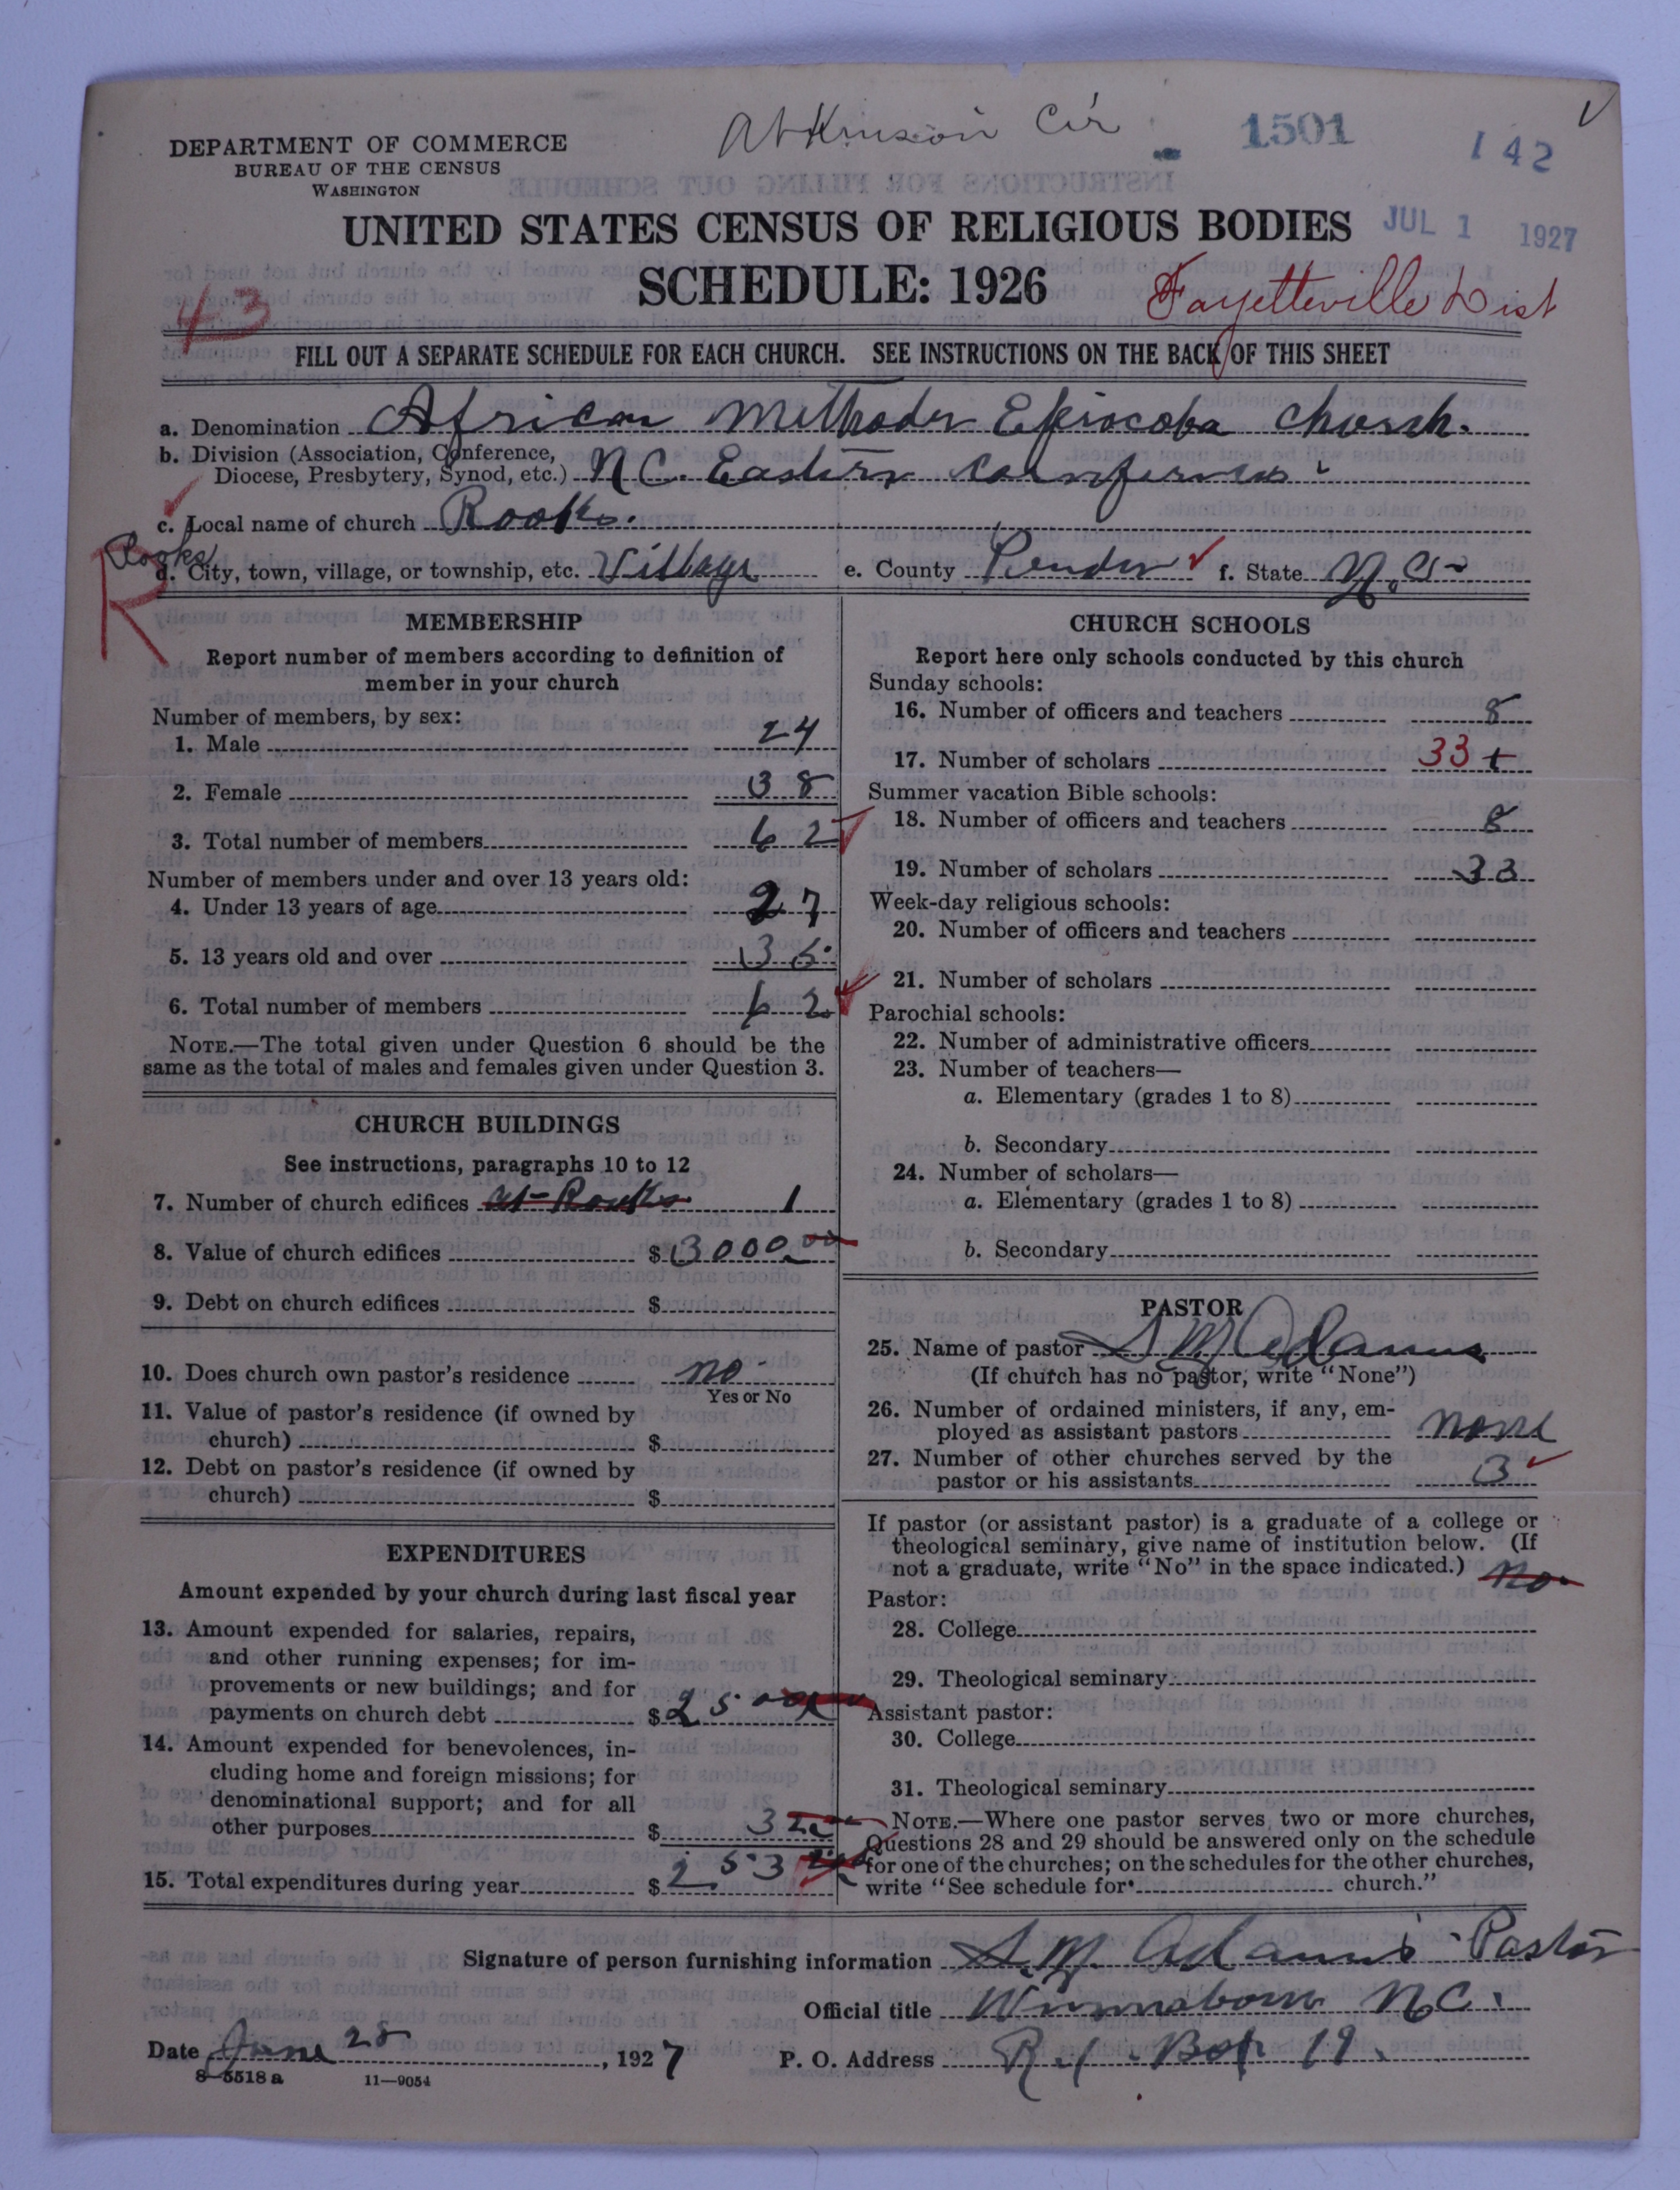 Atkinson Cir
1501
142
DEPARTMENT OF COMMERCE
BUREAU OF THE CENSUS
WASHINGTON
UNITED STATES CENSUS OF RELIGIOUS BODIES
JUL 1 1927
SCHEDULE: 1926
Fayetteville Dist
43
FILL OUT A SEPARATE SCHEDULE FOR EACH CHURCH. SEE INSTRUCTIONS ON THE BACK OF THIS SHEET
a. Denomination African Methodis Episcopa Church.
b. Division (Association, Conference,
Diocese, Presbytery, Synod, etc.) N C. Eastern Conference
c. Local name of church Rooks.
Rooks
R
d. City, town, village, or township, etc. Village e. County Pender f. State N.C.
MEMBERSHIP
Report number of members according to definition of
member in your church
Number of members, by sex:
1. Male 24
2. Female 38
3. Total number of members 62
Number of members under and over 13 years old:
4. Under 13 years of age 27
5. 13 years old and over 35
6. Total number of members 62
NOTE.—The total given under Question 6 should be the
same as the total of males and females given under Question 3.
CHURCH BUILDINGS
See instructions, paragraphs 10 to 12
7. Number of church edifices at Rooks 1
8. Value of church edifices $ 3000.00
9. Debt on church edifices $
10. Does church own pastor's residence no
Yes or No
11. Value of pastor's residence (if owned by
church) $
12. Debt on pastor's residence (if owned by
church) $
EXPENDITURES
Amount expended by your church during last fiscal year
13. Amount expended for salaries, repairs,
and other running expenses; for im-
provements or new buildings; and for
payments on church debt $ 250
14. Amount expended for benevolences, in-
cluding home and foreign missions; for
denominational support; and for all
other purposes $ 3
15. Total expenditures during year $ 253
CHURCH SCHOOLS
Report here only schools conducted by this church
Sunday schools:
16. Number of officers and teachers 8
17. Number of scholars 33 +
Summer vacation Bible schools:
18. Number of officers and teachers 8
19. Number of scholars 33
Week-day religious schools:
20. Number of officers and teachers
21. Number of scholars
Parochial schools:
22. Number of administrative officers
23. Number of teachers—
a. Elementary (grades 1 to 8)
b. Secondary
24. Number of scholars—
a. Elementary (grades 1 to 8)
b. Secondary
PASTOR
25. Name of pastor S M Adams
(If church has no pastor, write "None")
26. Number of ordained ministers, if any, em-
ployed as assistant pastors none
27. Number of other churches served by the
pastor or his assistants 3
If pastor (or assistant pastor) is a graduate of a college or
theological seminary, give name of institution below. (If
not a graduate, write "No" in the space indicated.) no
Pastor:
28. College
29. Theological seminary
Assistant pastor:
30. College
31. Theological seminary
NOTE.—Where one pastor serves two or more churches,
Questions 28 and 29 should be answered only on the schedule
for one of the churches; on the schedules for the other churches,
write "See schedule for church."
Signature of person furnishing information S. M. Adams Pastor
Official title Winnabow N.C.
Date June 28, 1927 P. O. Address R. 1. Box 19.
8—5518 a 11—9054